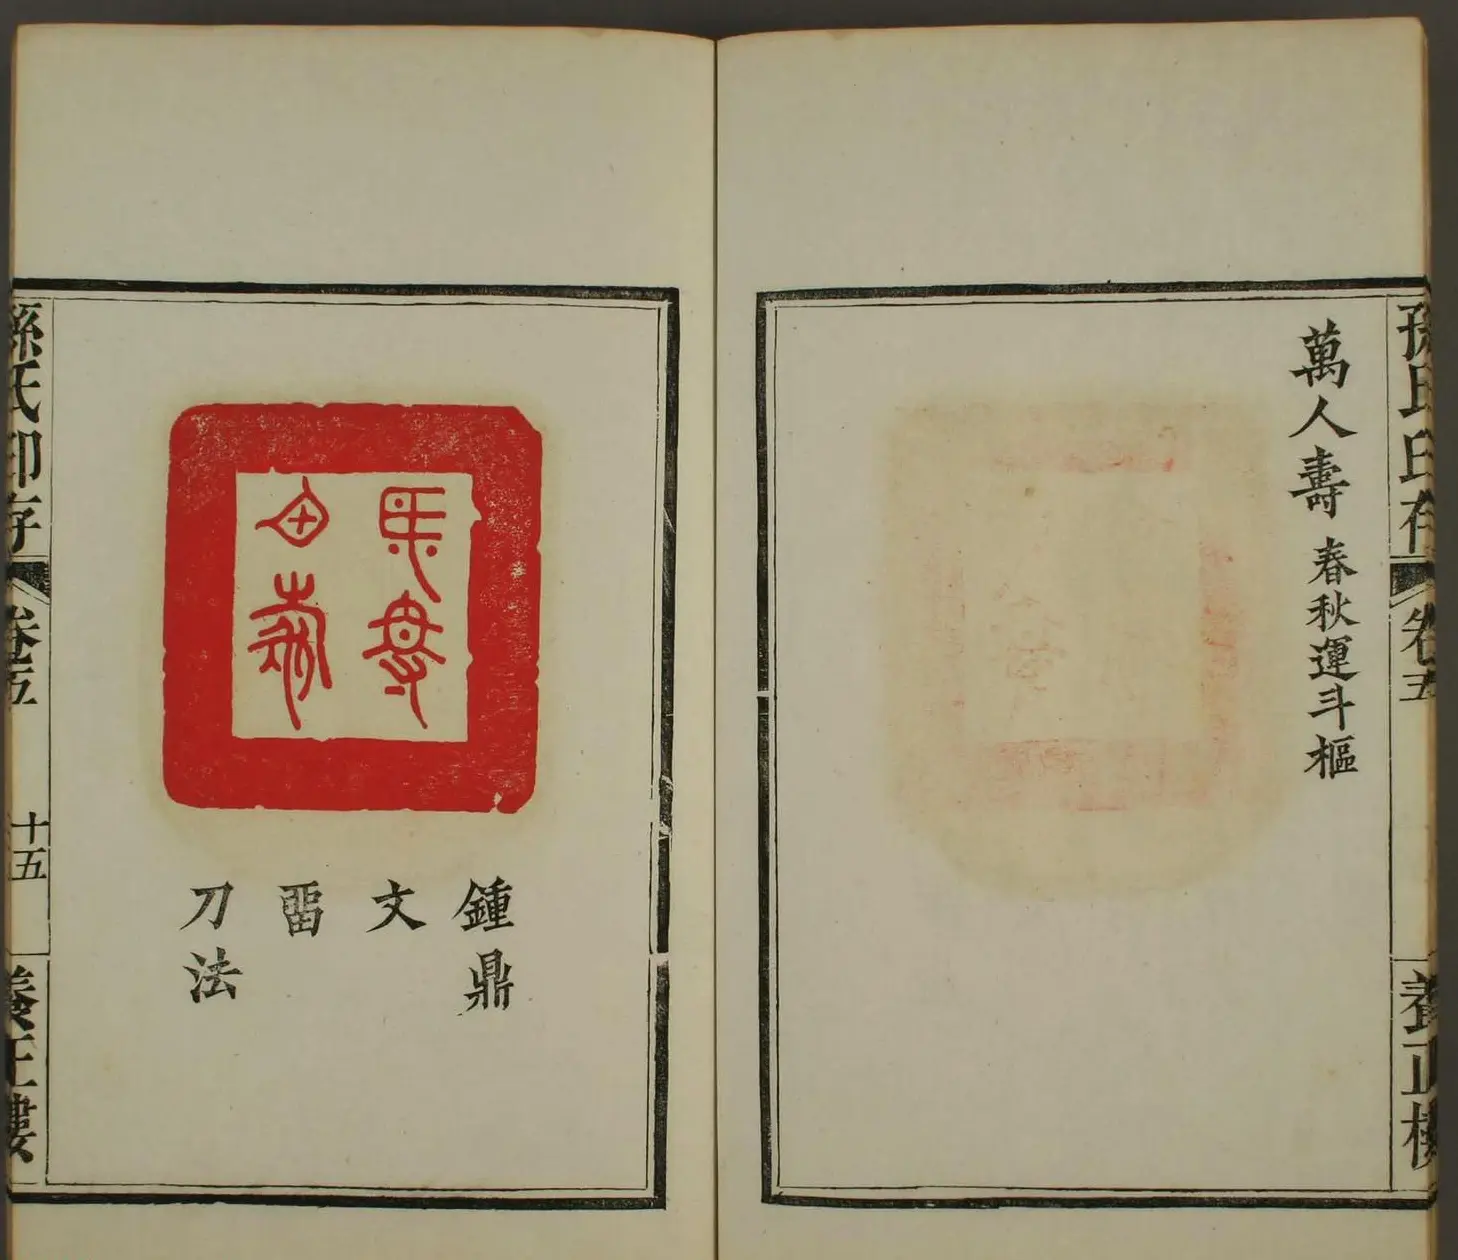 孫氏印存 卷五 養正樓
萬人壽 春秋運斗樞
鍾鼎
文
畱
刀法
孫氏印存 卷五 十五 養正樓